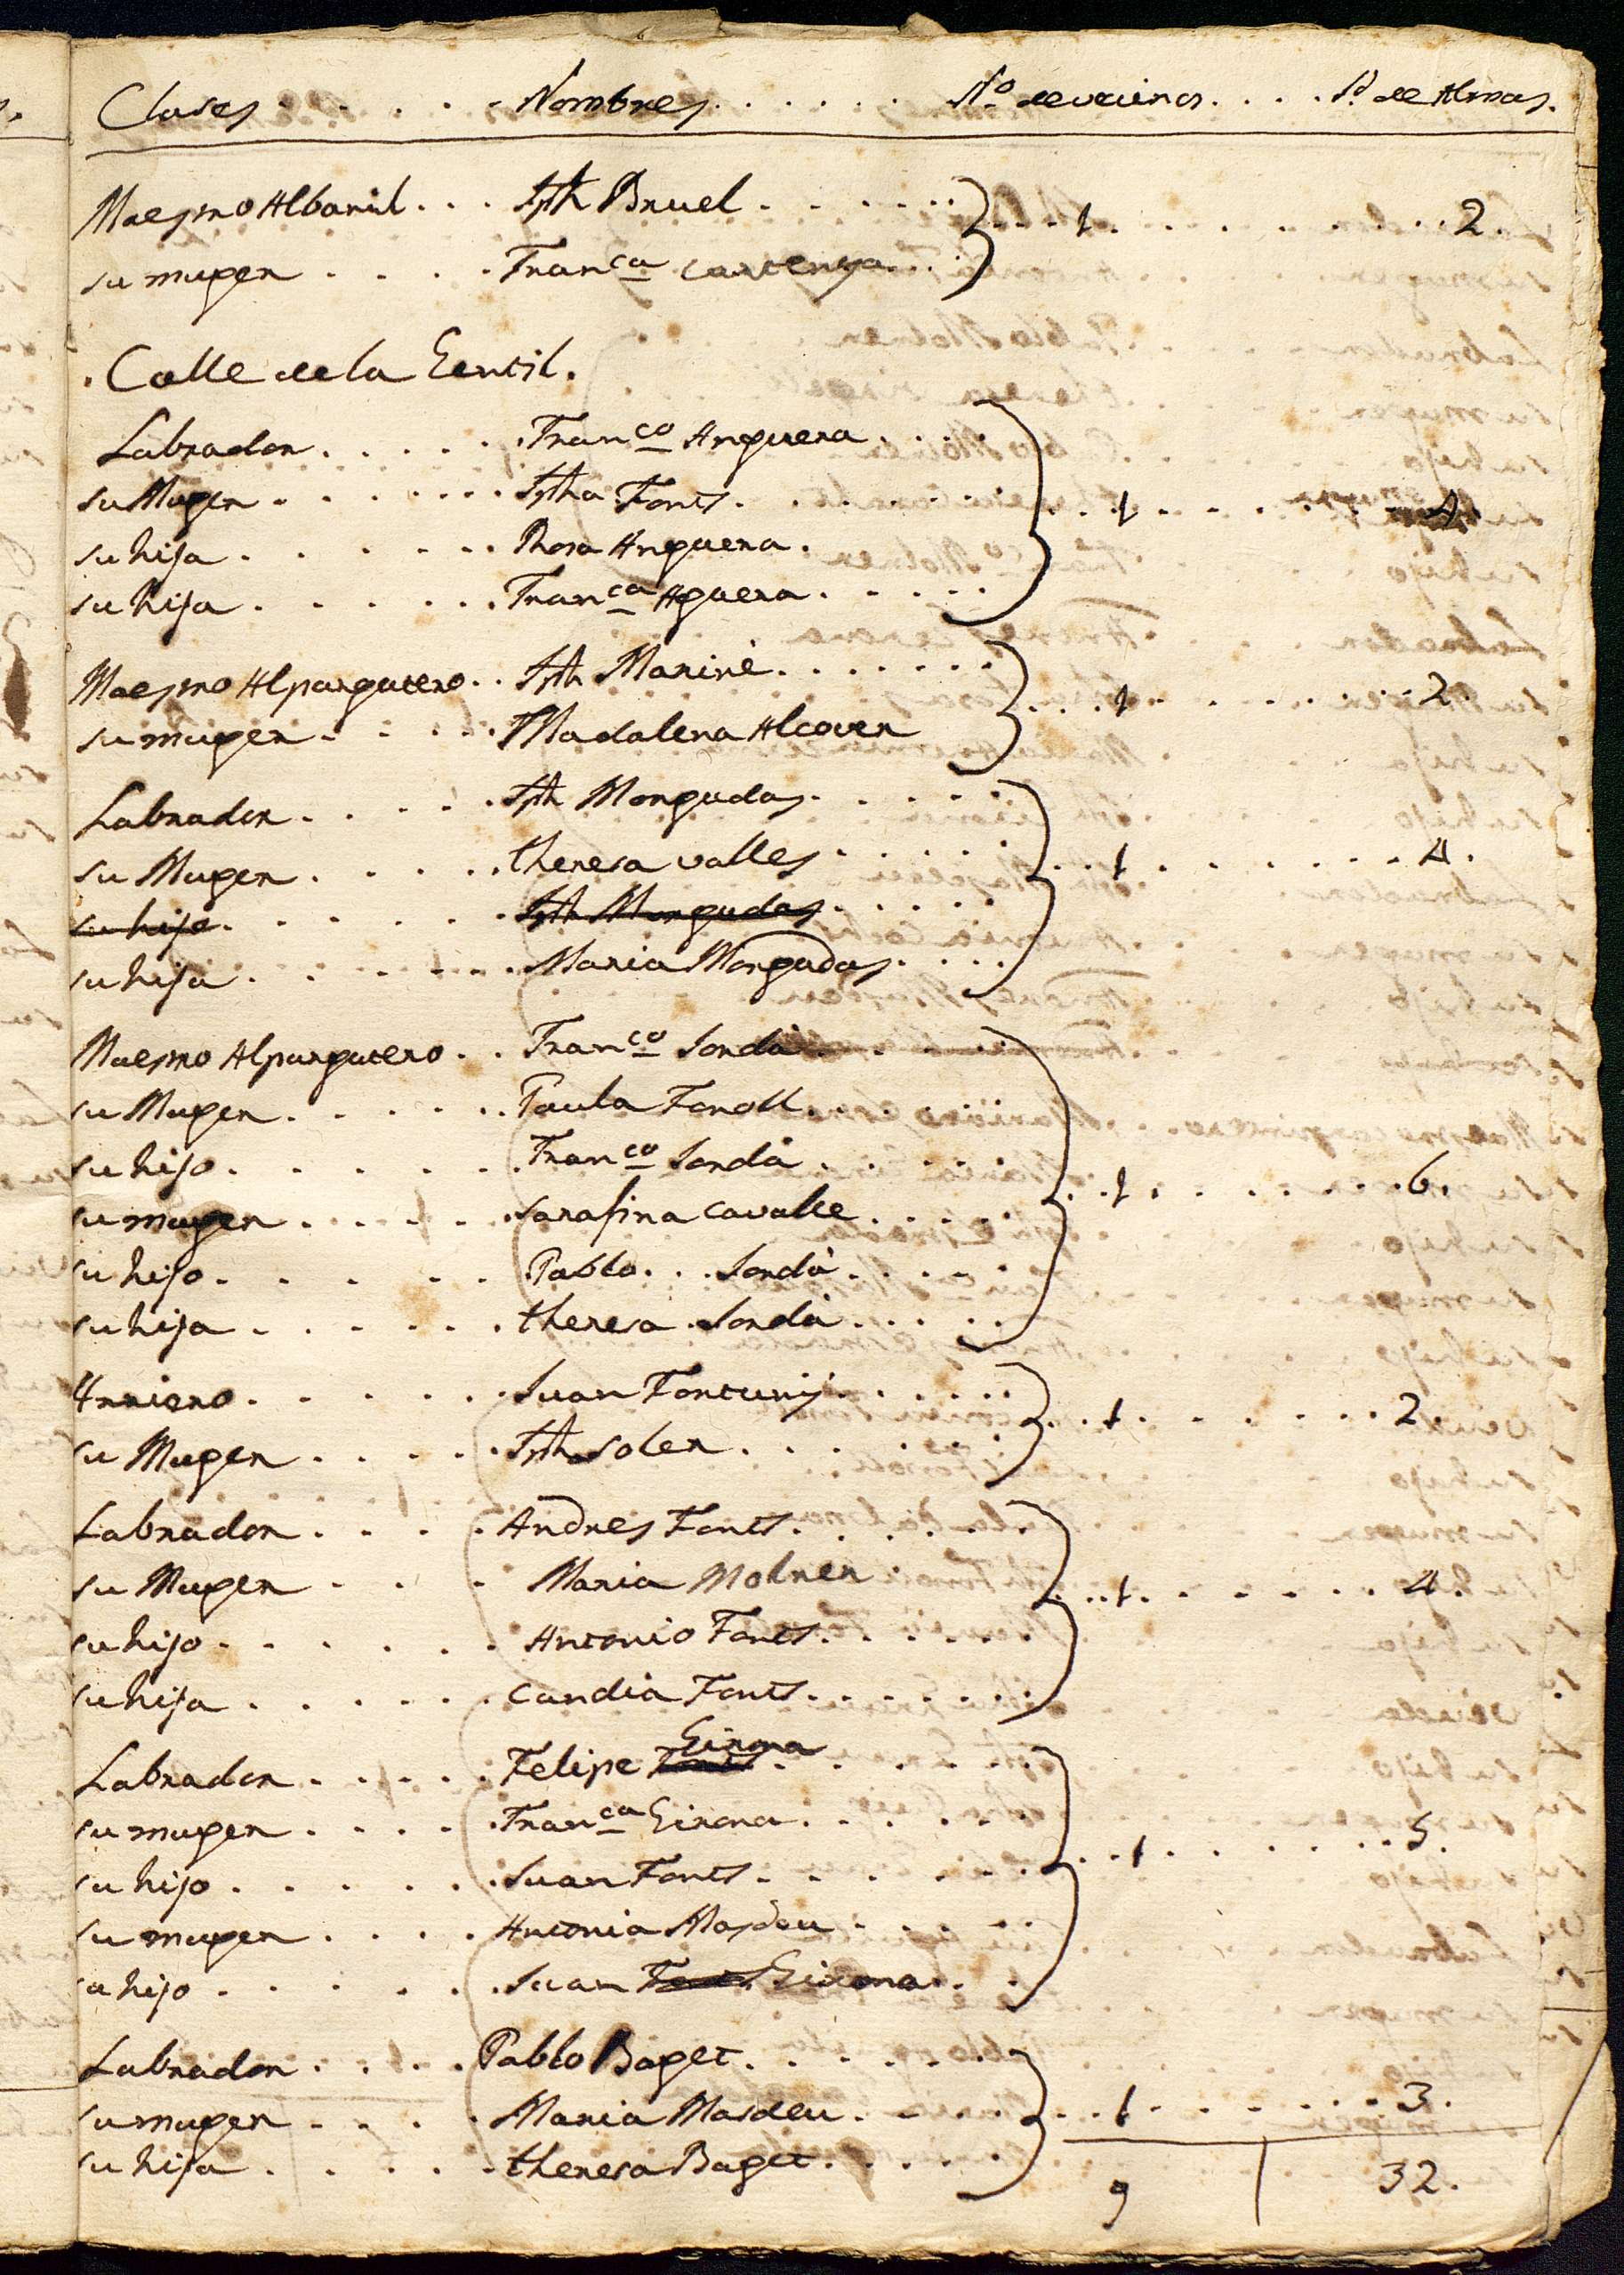 Clases . . . . . Nombres . . . . . . Nº de vecinos . . . . Nº de Almas.
Maestro Albanil . . . Jph Bruel . . . . . . . 1 . . . . . . . . . 2.
su muger . . . . Franca Cartenya . .
. Calle de la Gentil .
Labrador . . . . . Franco Anguera . . . .
su Muger . . . . . . . Jpha Fonts . . . . . . . 1 . . . . . . . 4.
su hija . . . . . . Rosa Anguera .
su hija . . . . . . Franca Aguera . . . . .
Maestro Alpargatero . . Jph Mariné . . . . . . . 1 . . . . . . . 2.
su muger . . . . Madalena Alcover
Labrador . . . . . Jph Morgadas . . . . .
su Muger . . . . . theresa valles . . . . . . . 1 . . . . . . . 4.
su hijo . . . . . . Jph Morgadas . . . . .
su hija . . . . . . Maria Morgadas . . . .
Maestro Alpargatero . . Franco Jordà . . . .
su Muger . . . . . . Paula Fonoll . . . .
su hijo . . . . . . Franco Jordà . . . . . . . 1 . . . . . . . 6.
su muger . . . . . sarafina Cavalle . . . .
su hijo . . . . . . Pablo . . . Jordà . . . . .
su hija . . . . . . theresa Jordà . . . . .
Arriero . . . . . . Juan Fortuny . . . . . .
su Muger . . . . . Jpha soler . . . . . . . 1 . . . . . . . 2.
Labrador . . . . Andres Fonts . . . . . .
su Muger . . . . Maria Molner . . . 1 . . . . . . . 4.
su hijo . . . . . . Antonio Fonts . . . . . .
su hija . . . . . . Candia Fonts . . . . . . .
Girona
Labrador . . . . . Felipe Fonts . . . . . .
su muger . . . . . Franca Girona . . . . .
su hijo . . . . . . Juan Fonts . . . . . . . 1 . . . . . . . 5.
su muger . . . . Antonia Masdeu . . . .
su hijo . . . . . . Juan Fonts Girona . . .
Labrador . . . . . Pablo Baget . . . . . . .
su muger . . . . Maria Masdeu . . . . . 1 . . . . . . . 3.
su hija . . . . . theresa Baget . . . . .
9 32.